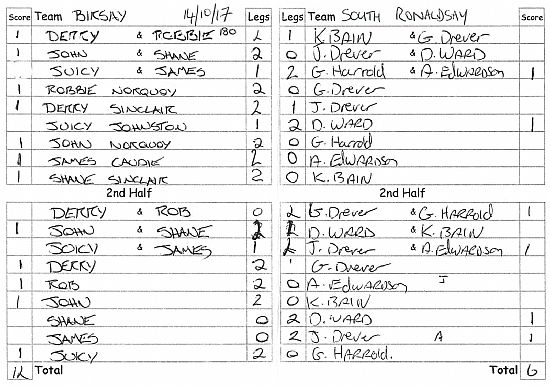 Score Team BIRSAY 14/10/17 Legs Legs Team SOUTH RONALDSAY Score
1 DERRY & ROBBIE 180 2 1 K. BAIN & G. Drever
1 JOHN & SHANE 2 0 J. Drever & D. WARD
JUICY & JAMES 1 2 G. Harrold & A. Edwardson 1
1 ROBBIE NORQUOY 2 0 G. Drever
1 DERRY SINCLAIR 2 1 J. Drever
JUICY JOHNSTON 1 2 D. WARD 1
1 JOHN NORQUOY 2 0 G. Harrold
1 JAMES CAUDIE 2 0 A. EdWARDson
1 SHANE SINCLAIR 2 0 K. BAIN
2nd Half 2nd Half
DERRY & ROB 0 2 G. Drever & G. HARROLD 1
1 JOHN & SHANE 2 D. WARD & K. BAIN
JUICY & JAMES 1 2 J. Drever & A. Edwardson 1
1 DERRY 2 1 G. Drever
1 ROB 2 0 A. Edwardson I
1 JOHN 2 0 K. BAIN
SHANE 0 2 D. WARD 1
JAMES 0 2 J. Drever A 1
1 JUICY 2 0 G. HARROLD.
12 Total Total 6